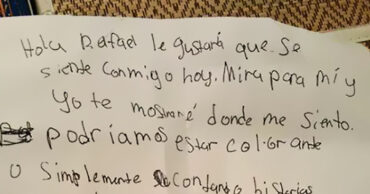 Hola Rafael le gustará que se
siente conmigo hoy. Mira para mí y
Yo te mostraré donde me siento.
podriamos estar colorante
O Simplemente contando historias